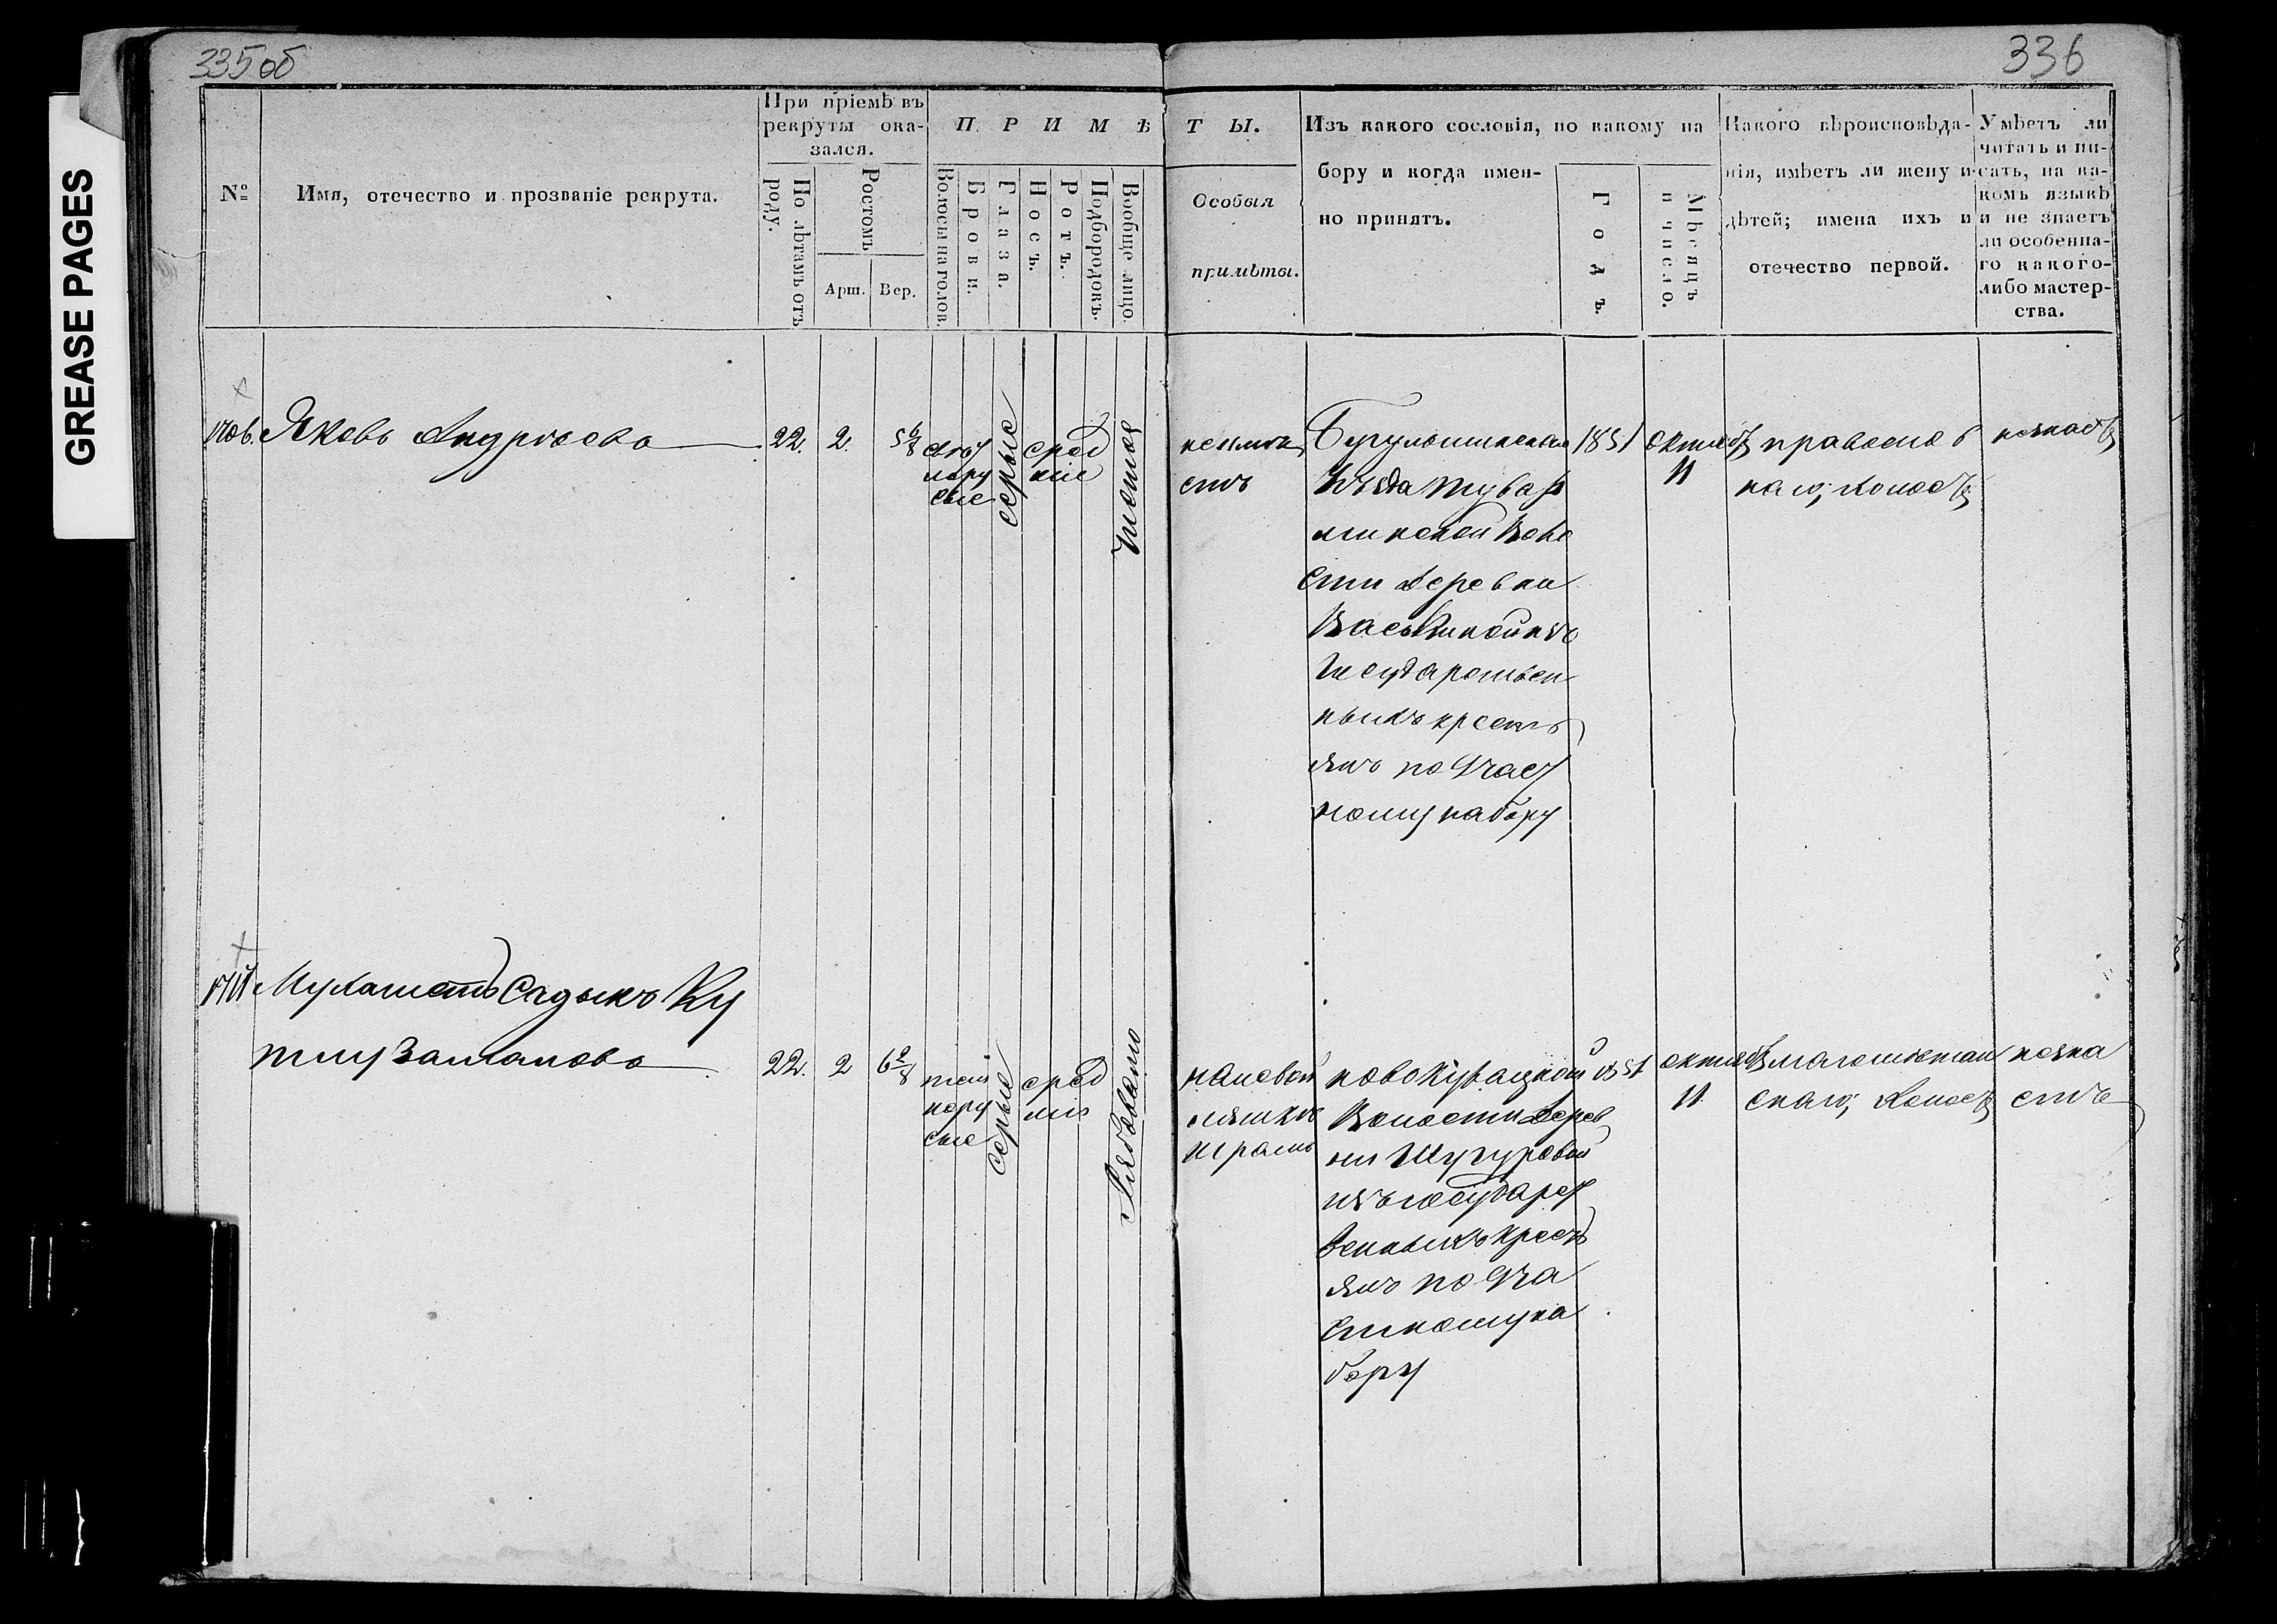 335 об
336
GREASE PAGES
№
Имя, отечество и прозваніе рекрута.
При пріемѣ въ
рекруты ока-
зался.
По лѣтамъ отъ
роду.
Ростомъ
Арш.
Вер.
ПРИМѢ
ТЫ.
Волосы на голов.
Брови.
Глаза.
Носъ.
Ротъ.
Подбородокъ.
Вообще лицо.
Особыя
примѣты.
Изъ какого сословія, по какому на
бору и когда имен-
но принятъ.
Годъ.
Мѣсяцъ
и число.
Какого вѣроисповѣда-
нія, имѣетъ ли жену и
дѣтей; имена ихъ и
отечество первой.
Умѣетъ ли
читать и пи-
сать, на ка-
комъ языкѣ
и не знаетъ
ли особенна-
го какого-
либо мастер-
ства.
Яковъ Андреевъ
22. 2. 5 6/8
ру
сые
сѣрые
сред
ніе
чистое
неимѣ
етъ
Бугульминскаго
Уѣзда
минской Воло
сти деревни
изъ
Государствен
ныхъ кресть
янъ по част
ному набору
1851
октяб
11
православ
наго; холост
Мухаметъ Садыкъ Ку
тлузамановъ
22. 2 6 2/8
тем
нору
сые
сѣрые
сред
ніе
Рябовато
на левой
ляшкѣ
шрамъ
Волости дерев
ни Шугуровой
изъ государст
венныхъ кресть
янъ по ча
стному на
бору
1851
октяб
11
магометан
скаго; холост
незна
етъ